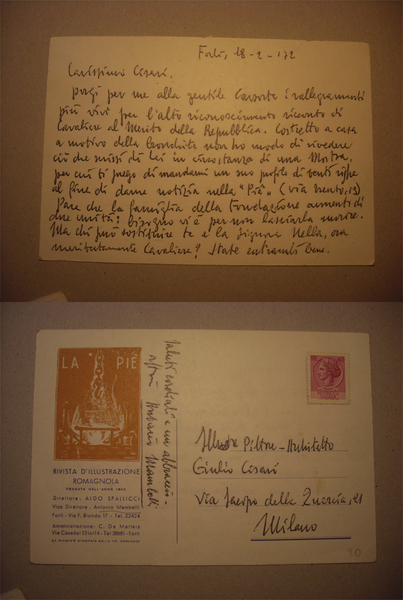 Forlì, 18-2-172
Carissimo Cesari,
porgi per me alla gentile Consorte i rallegramenti
più vivi per l'alto riconoscimento ricevuto di
Cavaliere al Merito della Repubblica. Costretto a casa
a motivo della bronchite non ho modo di rivedere
ciò che scrissi di Lei in circostanza di una Mostra,
per cui ti prego di mandarmi un suo profilo di venti righe
al fine di darne notizia nella "Piê" (via Trento, 19)
Pare che la famiglia della Fondazione aumenti di
due unità: bisogno vi è per non lasciarla morire.
Ma chi può sostituire te e la Signora Nella, ora
meritatamente Cavaliere? State entrambi bene.
LA PIÊ
RIVISTA D'ILLUSTRAZIONE
ROMAGNOLA
FONDATA NELL'ANNO
Direttore: ALDO SPALLICCI
Vice Direttore: Antonio Mambelli
Forlì - Via F. Biondo 17 - Tel. 22424
Amministrazione: C. De Matteis
Forlì
Saluti cordiali e un abbraccio.
Antonio Mambelli
Illustre Pittore-Architetto
Giulio Cesari
Via Jacopo della Quercia, 21
Milano